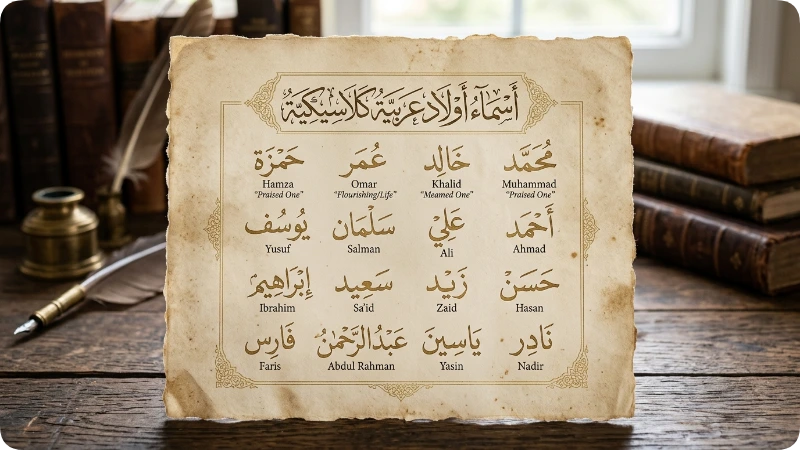 أَسْمَآءُ أَوْلَاد عَرَبِيَّة كَلَاسِيكِيَّة
مُحَمَّد خَالِد عُمَر حَمْزَة
Hamza Omar Khalid Muhammad
"Praised One" "Flourishing/Life" "Meamed One" "Praised One"
أَحْمَد عَلِيْ سَلْمَان يُوسُف
Yusuf Salman Ali Ahmad
حَسَنْ زَيْد سَعِيد إِبْرَاهِيمْ
Ibrahim Sa'id Zaid Hasan
نَادِر يَاسِينَ عَبْدُالرَّحْمٰنُ فَارِس
Faris Abdul Rahman Yasin Nadir